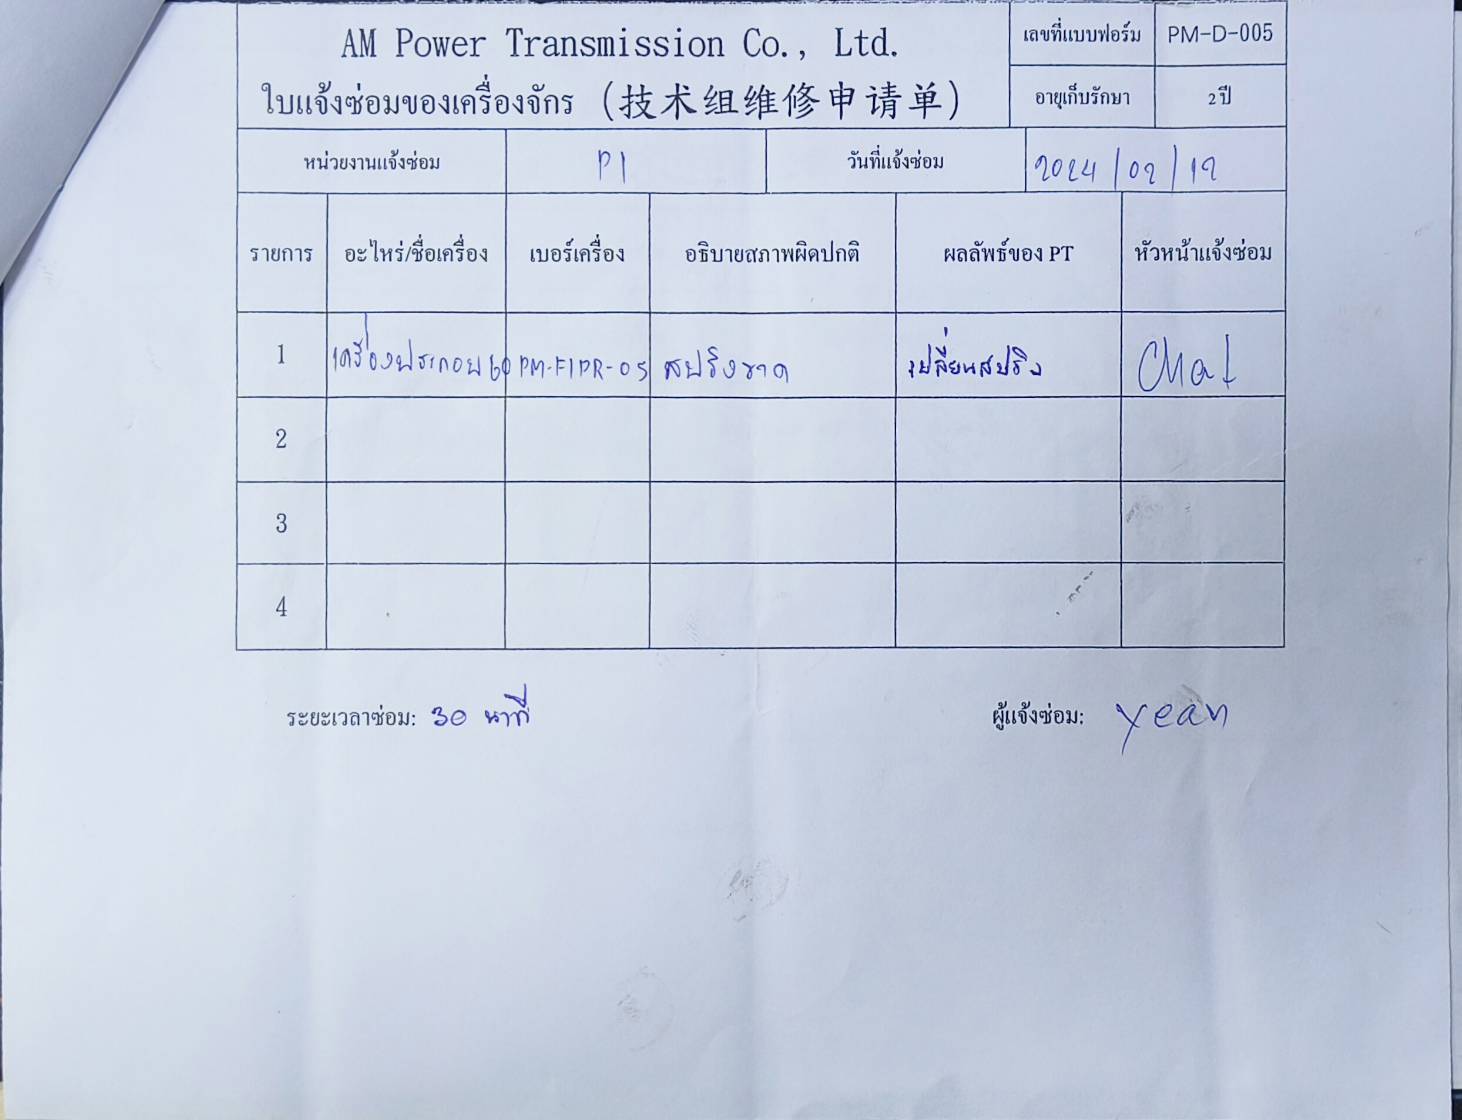 AM Power Transmission Co., Ltd.
ใบแจ้งซ่อมของเครื่องจักร (技术组维修申请单)
เลขที่แบบฟอร์ม PM-D-005
อายุเก็บรักษา 2 ปี
หน่วยงานแจ้งซ่อม P1 วันที่แจ้งซ่อม 2024/02/12
รายการ อะไหร่/ชื่อเครื่อง เบอร์เครื่อง อธิบายสภาพผิดปกติ ผลลัพธ์ของ PT หัวหน้าแจ้งซ่อม
1 เครื่องประกอบ 60 PM-F1PR-05 สปริงขาด เปลี่ยนสปริง
2
3
4
ระยะเวลาซ่อม: 30 นาที ผู้แจ้งซ่อม: Yean